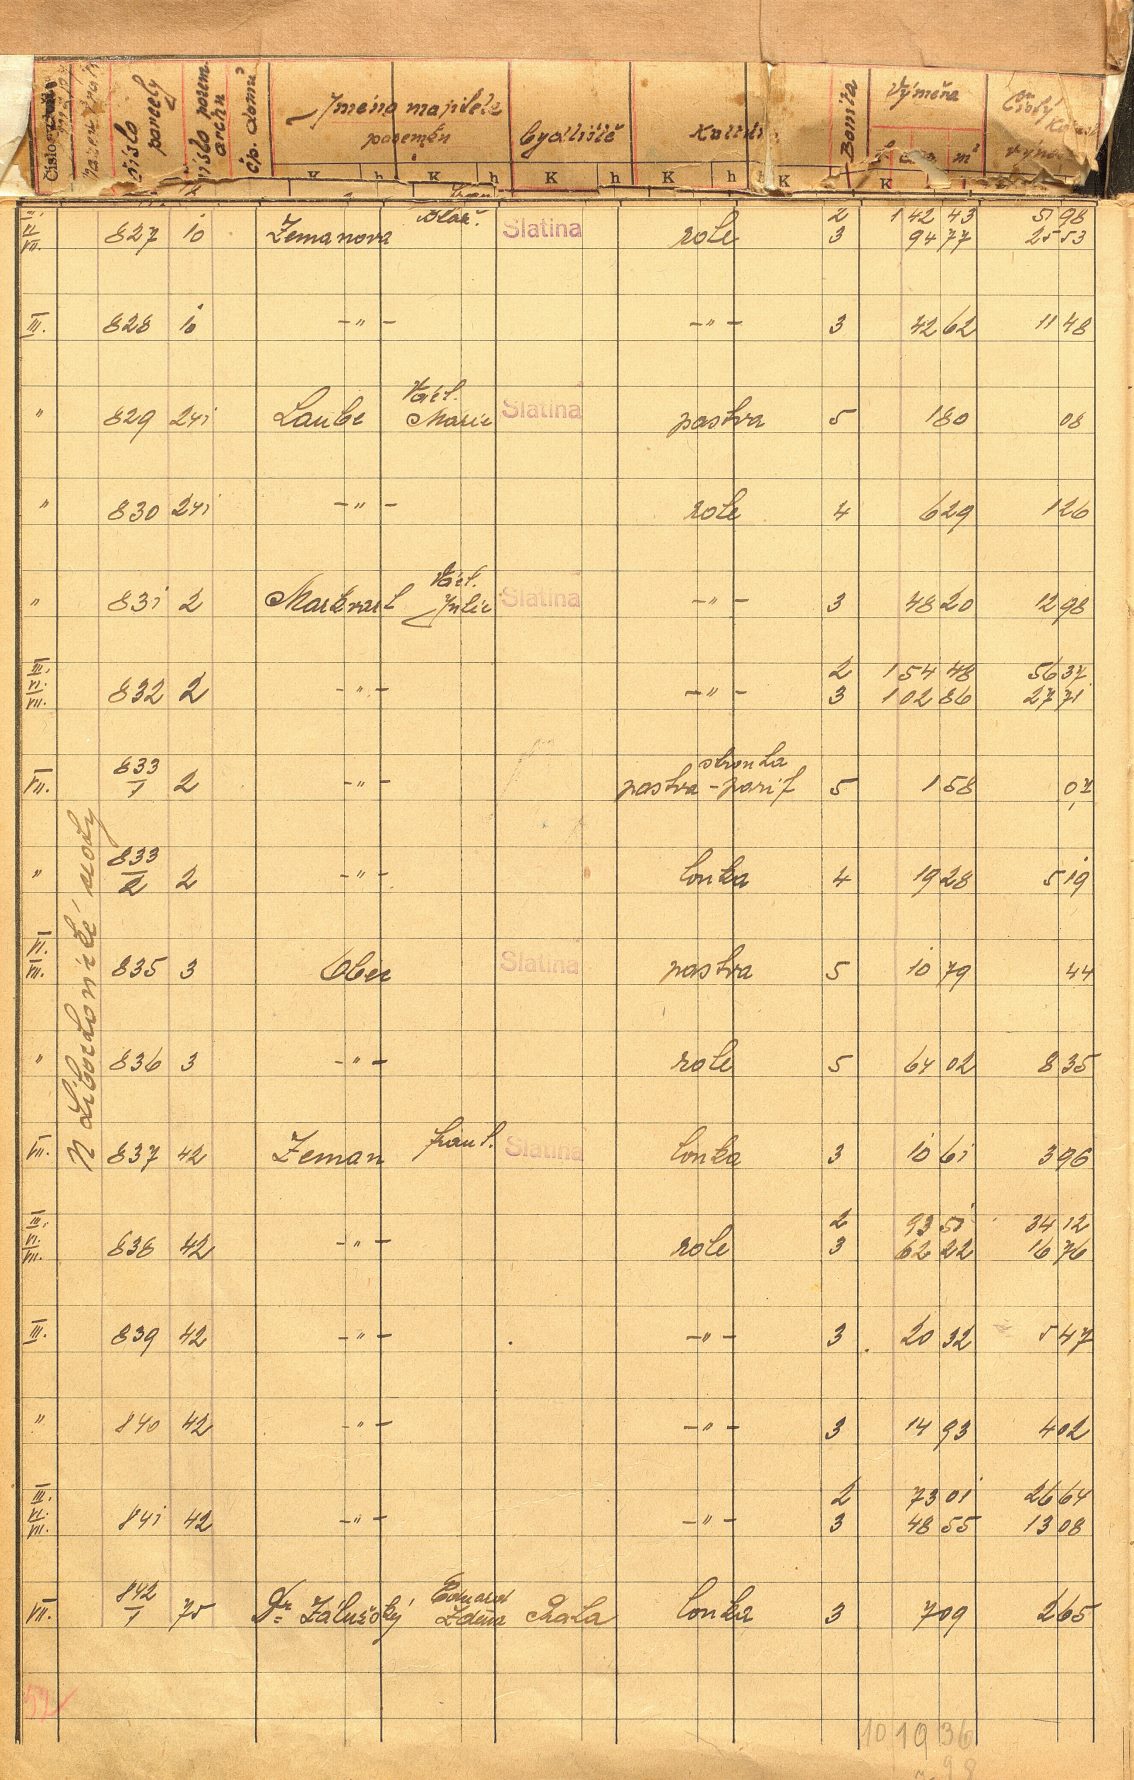 Číslo mapy
číslo parcely
číslo pozem. archu
čp. domu
Jméno majitele pozemku
bydliště
Kultura
Bonita
Výměra
m²
Čistý
K h K h K h K h K K
III. VI. VII. 827 10 Zemanova Slatina role 2 142 43 51 98
3 94 77 25 53
III. 828 10 -"- -"- 3 42 62 11 48
Václ.
" 829 241 Laube Marie Slatina pastva 5 1 80 08
" 830 241 -"- role 4 6 29 1 26
Václ.
" 831 2 Markvart Julie Slatina -"- 3 48 20 12 98
III. VI. VII. 832 2 -"- -"- 2 154 48 56 37
3 102 86 27 71
stronka
VII. 833/1 2 -"- pastva - 5 1 58 07
" 833/2 2 -"- louka 4 19 28 5 19
VI. VII. 835 3 Obec Slatina pastva 5 10 79 44
" 836 3 -"- role 5 64 02 8 35
VII. 837 42 Zeman Frant. Slatina louka 3 10 61 3 96
III. VI. VII. 838 42 -"- role 2 93 51 34 12
3 62 22 16 76
III. 839 42 -"- -"- 3 20 32 5 47
" 840 42 -"- -"- 3 14 93 4 02
III. VI. VII. 841 42 -"- -"- 2 73 01 26 64
3 48 55 13 08
Eduard
VII. 842/1 75 Dr Zálušský Zdena louka 3 7 09 2 65
10 19 36